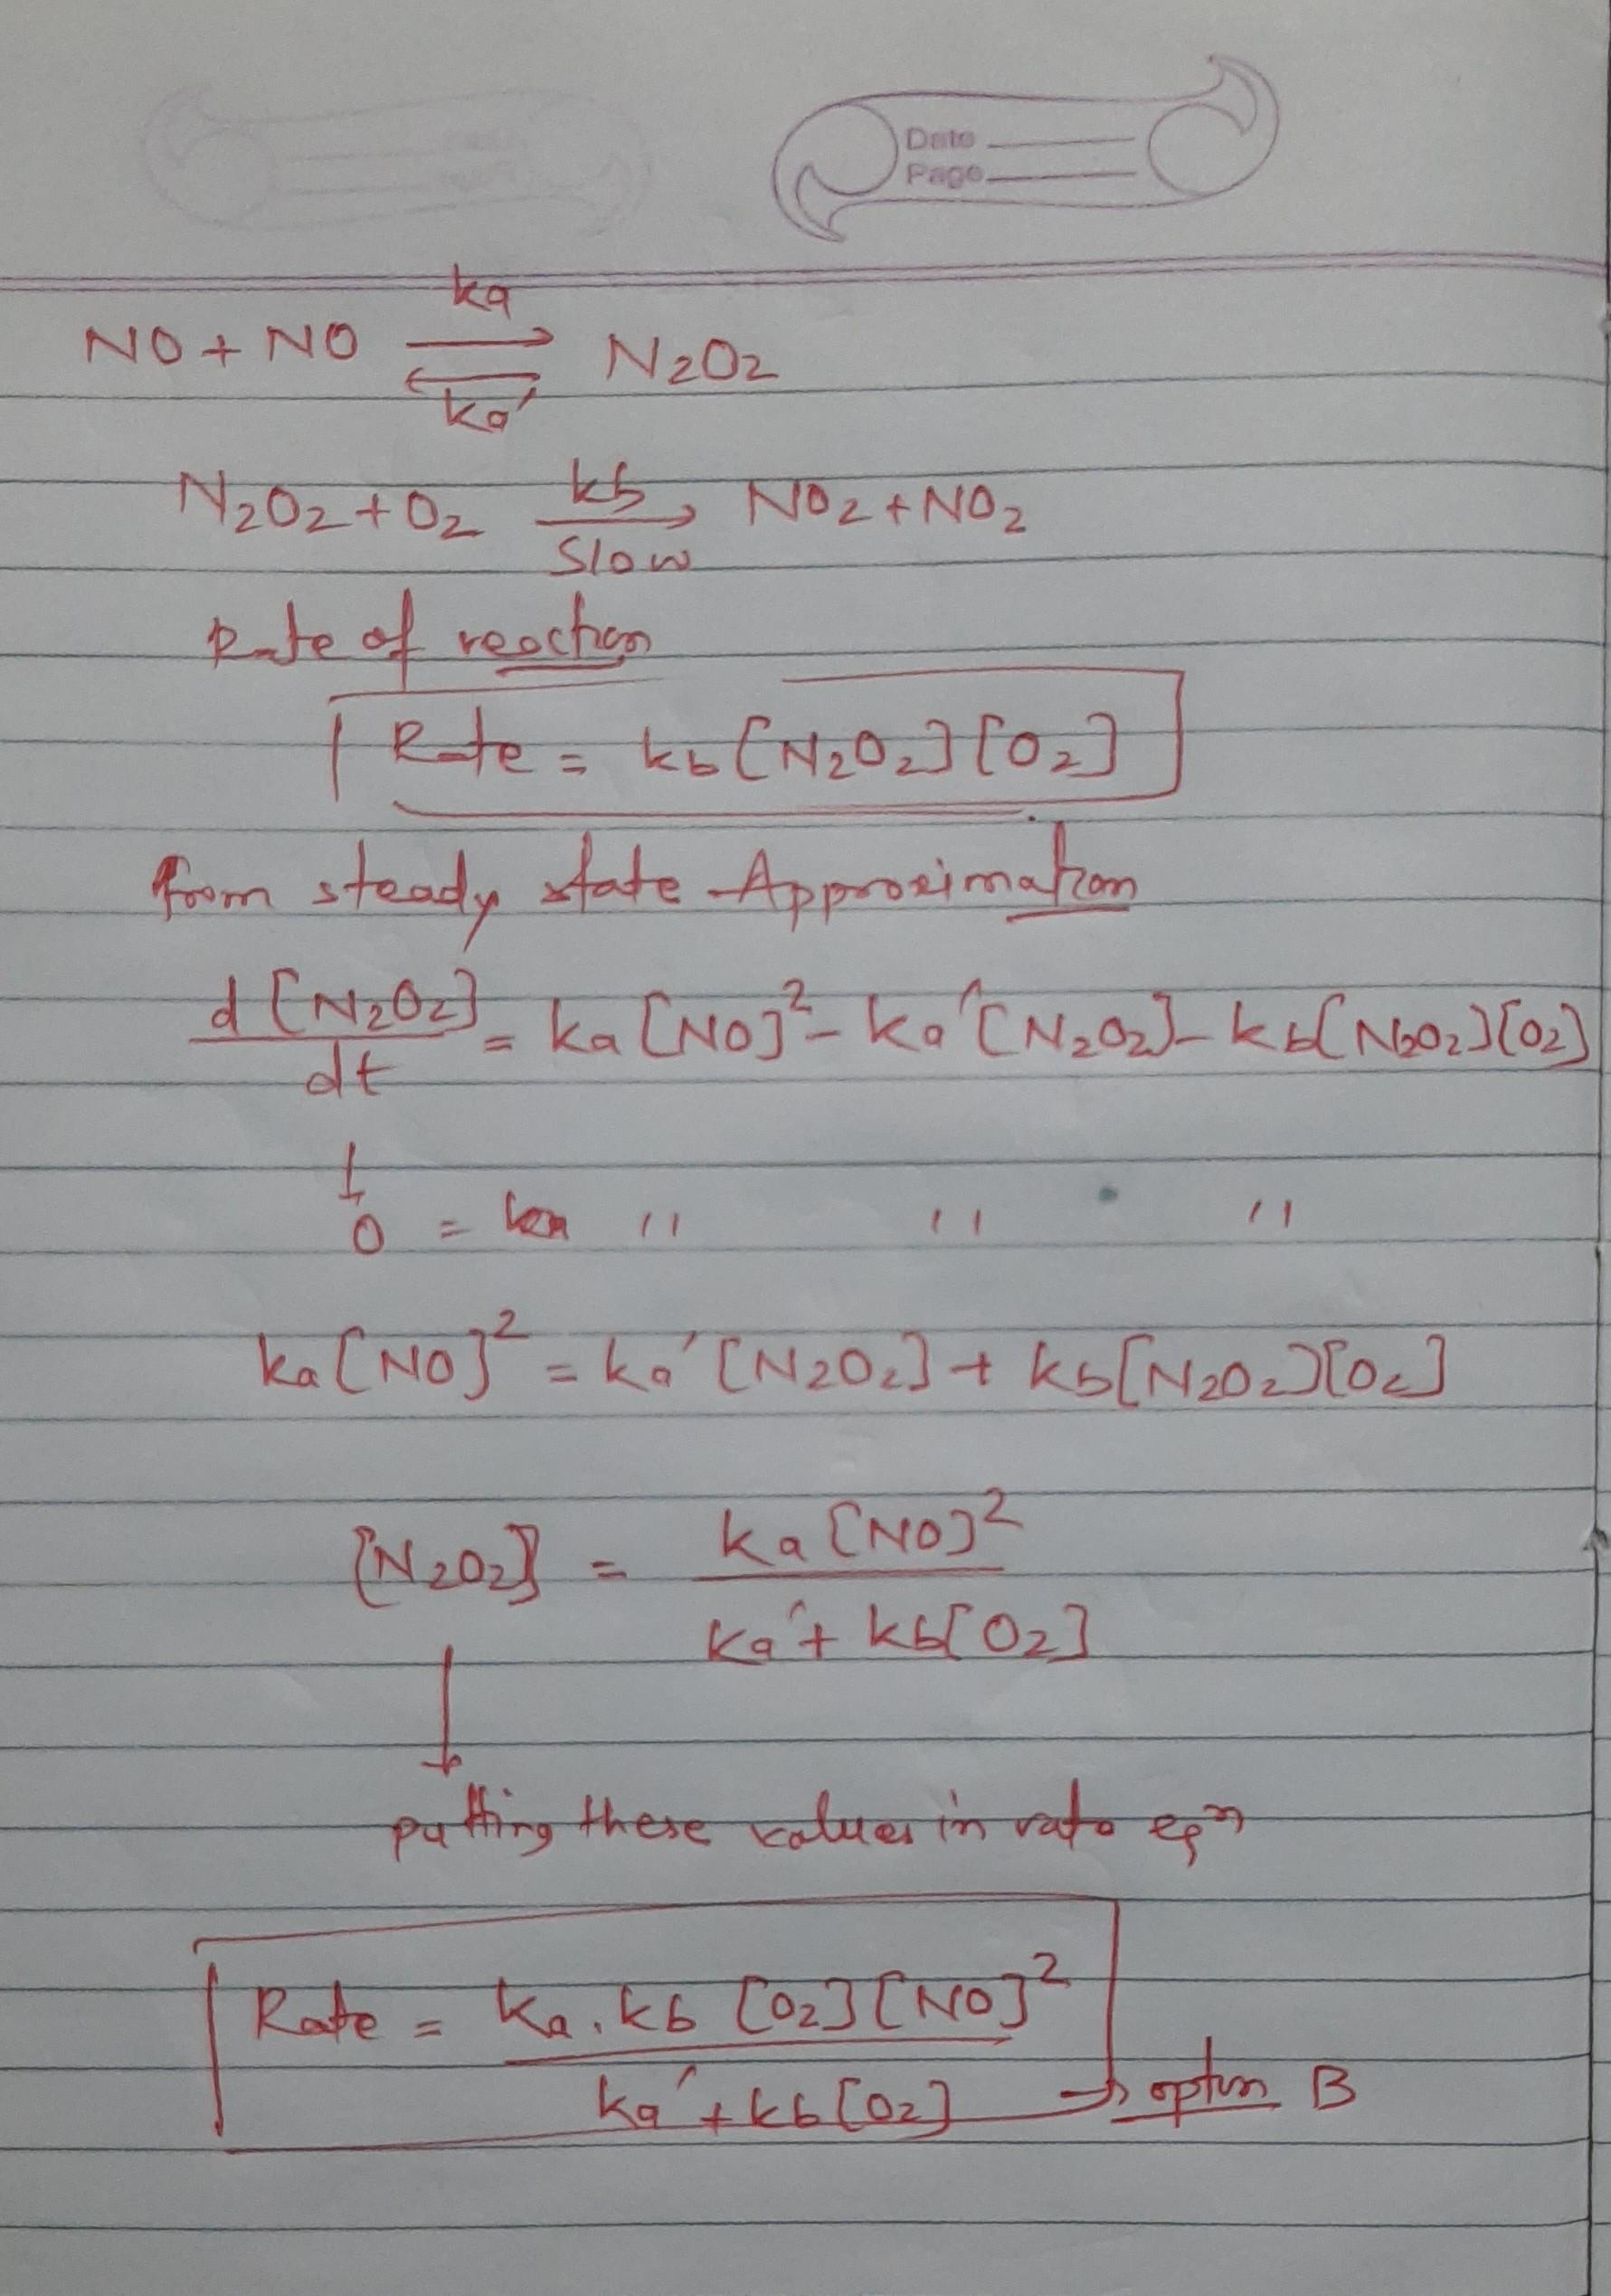 Date
Page
ka
NO + NO ⇌ N2O2
ka'
N2O2 + O2 kb→ NO2 + NO2
Slow
Rate of reaction
Rate = kb [N2O2] [O2]
from steady state Approximation
d [N2O2] / dt = ka [NO]² - ka' [N2O2] - kb [N2O2] [O2]
↓
0 = ka " " "
ka [NO]² = ka' [N2O2] + kb [N2O2] [O2]
[N2O2] = ka [NO]² / ka' + kb [O2]
putting these values in rate eqn
Rate = ka . kb [O2] [NO]² / ka' + kb [O2] → option B